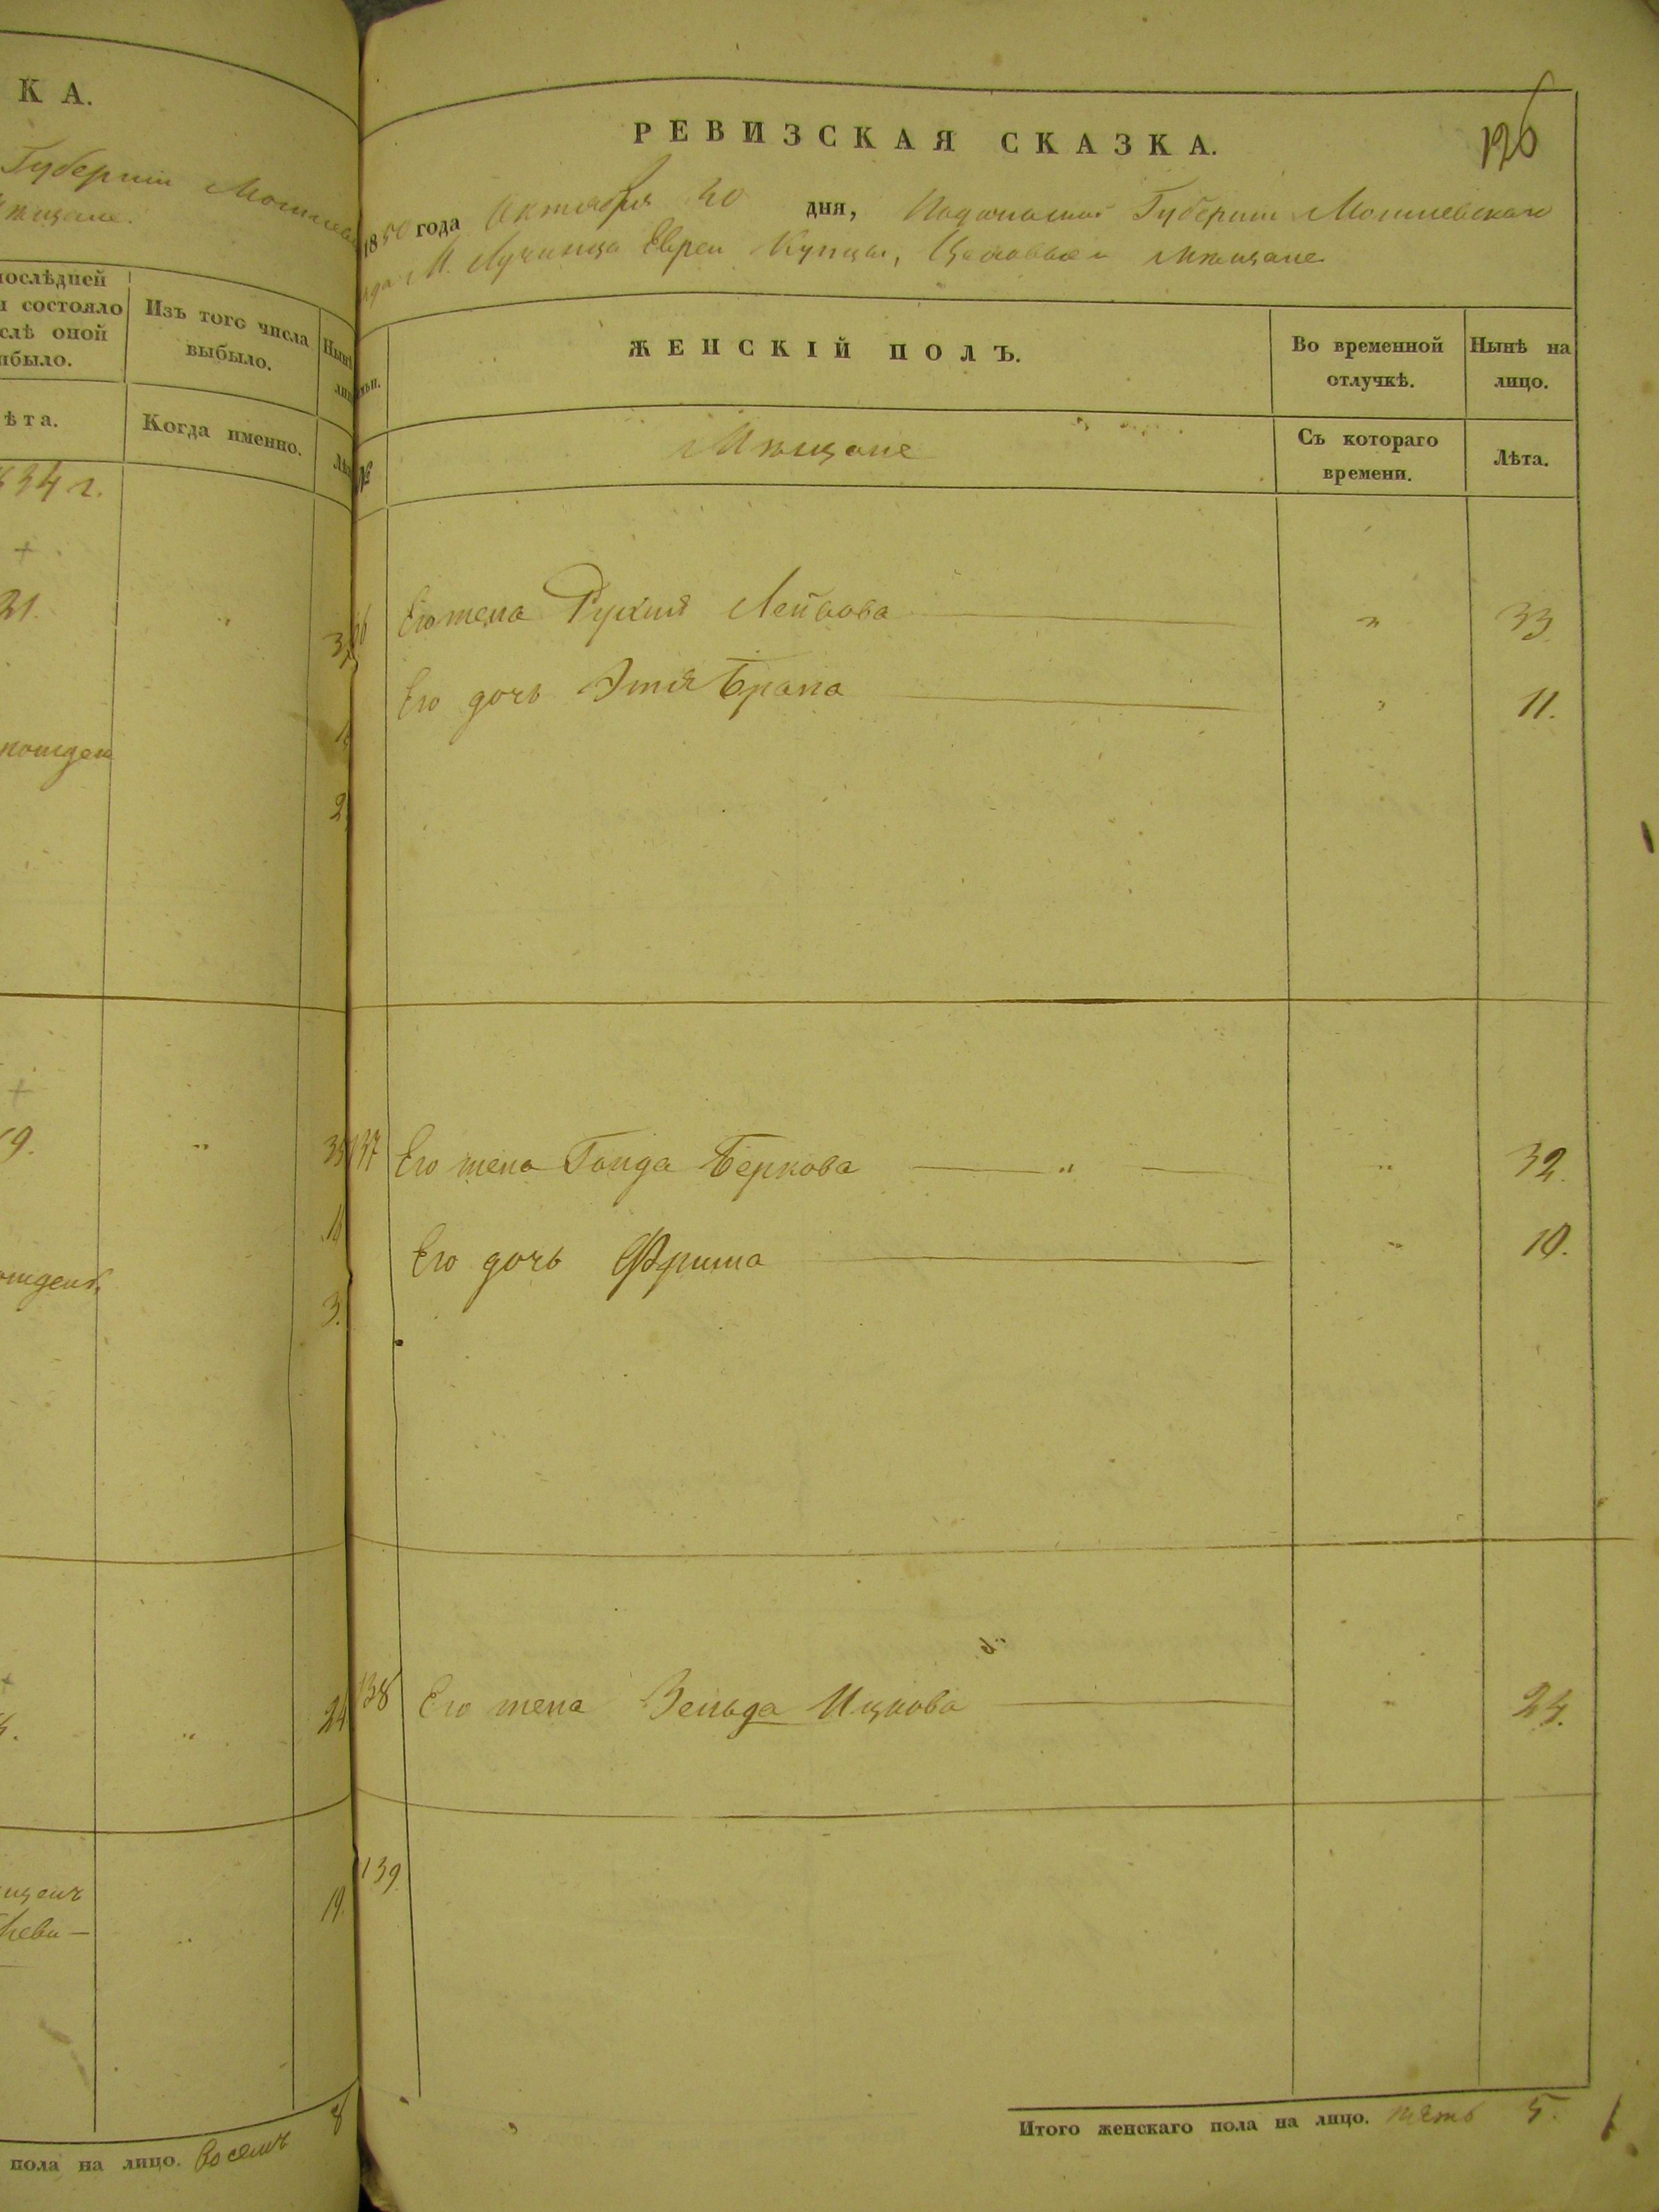 К А.
Губерніи Могилев
мѣщане.
послѣдней
и состояло
слѣ оной
ибыло.
Изъ того числа
выбыло.
Нынѣ
ли
ѣта.
Когда именно.
Лѣт
834 г.
+
21.
3
1
2
+
9.
35
3.
+
24
19.
пола на лицо. Восемь
8
РЕВИЗСКАЯ СКАЗКА.
126
1850 года Октября 20 дня, Подольской Губерніи Могилевскаго
М. Лучинца Евреи Купцы, Цеховые и Мѣщане
ЖЕНСКІЙ ПОЛЪ.
Во временной
отлучкѣ.
Нынѣ на
лицо.
№
Мѣщане
Съ котораго
времени.
Лѣта.
Его жена Рухля Лейбова " 33.
Его дочь Этя Брана " 11.
137 Его жена Голда Беркова " " 32.
Его дочь Фрима " 10.
138 Его жена Зельда Ицкова " 24.
139.
Итого женскаго пола на лицо. пять 5.